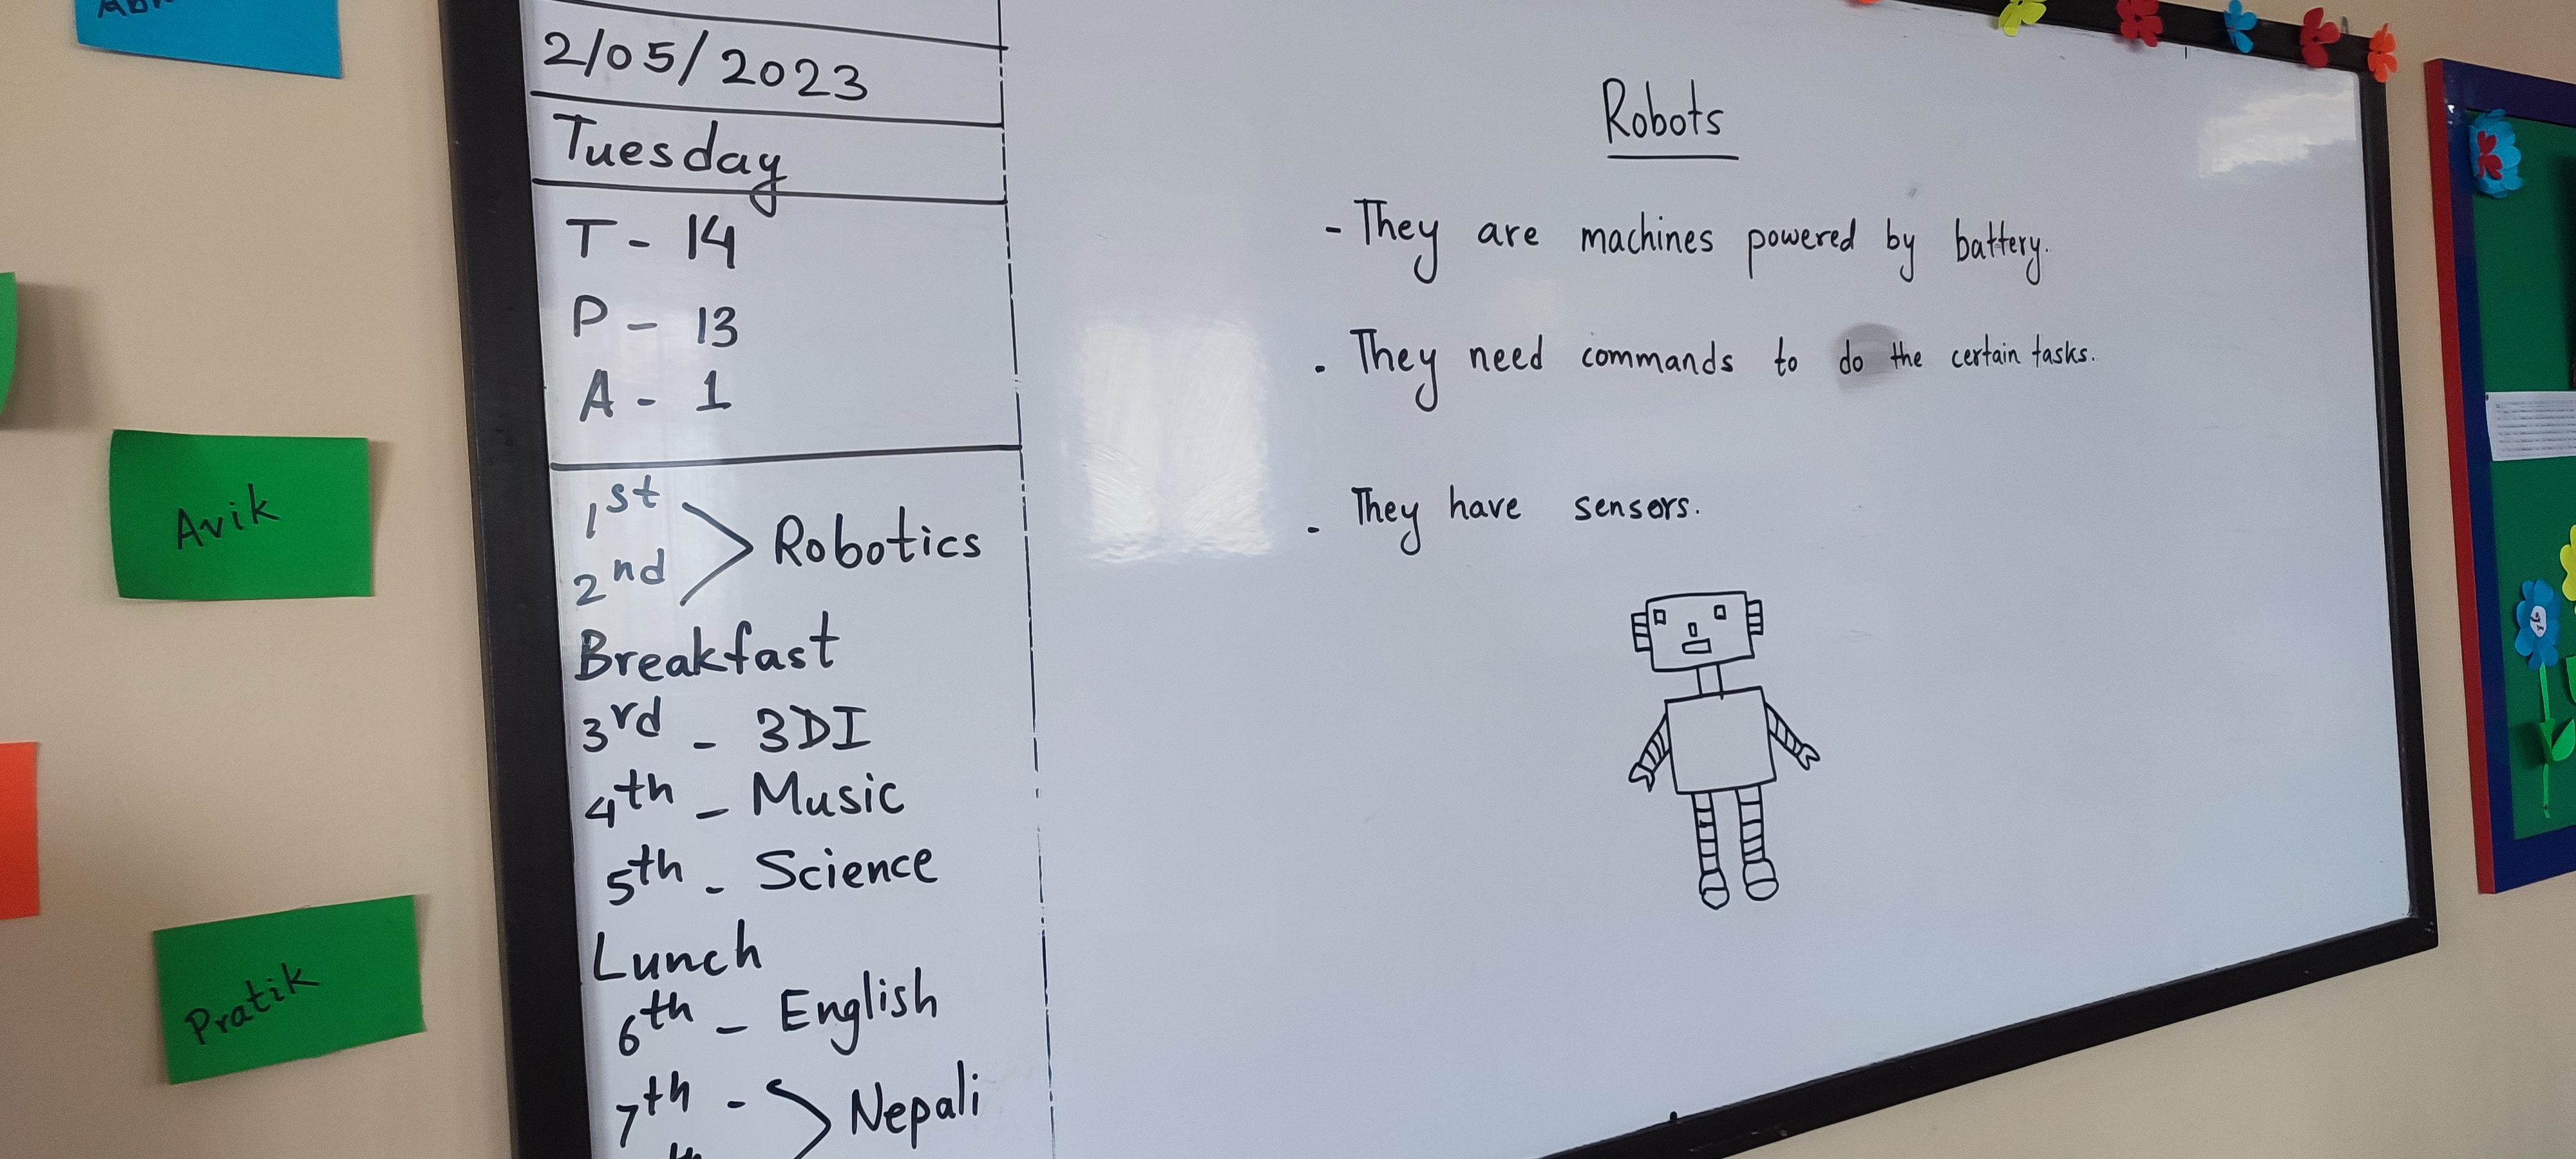 2/05/2023
Tuesday
T - 14
P - 13
A - 1
1st
2nd
Robotics
Breakfast
3rd - 3DI
4th - Music
5th - Science
Lunch
6th - English
7th - Nepali
Robots
- They are machines powered by battery.
- They need commands to do the certain tasks.
- They have sensors.
Avik
Pratik